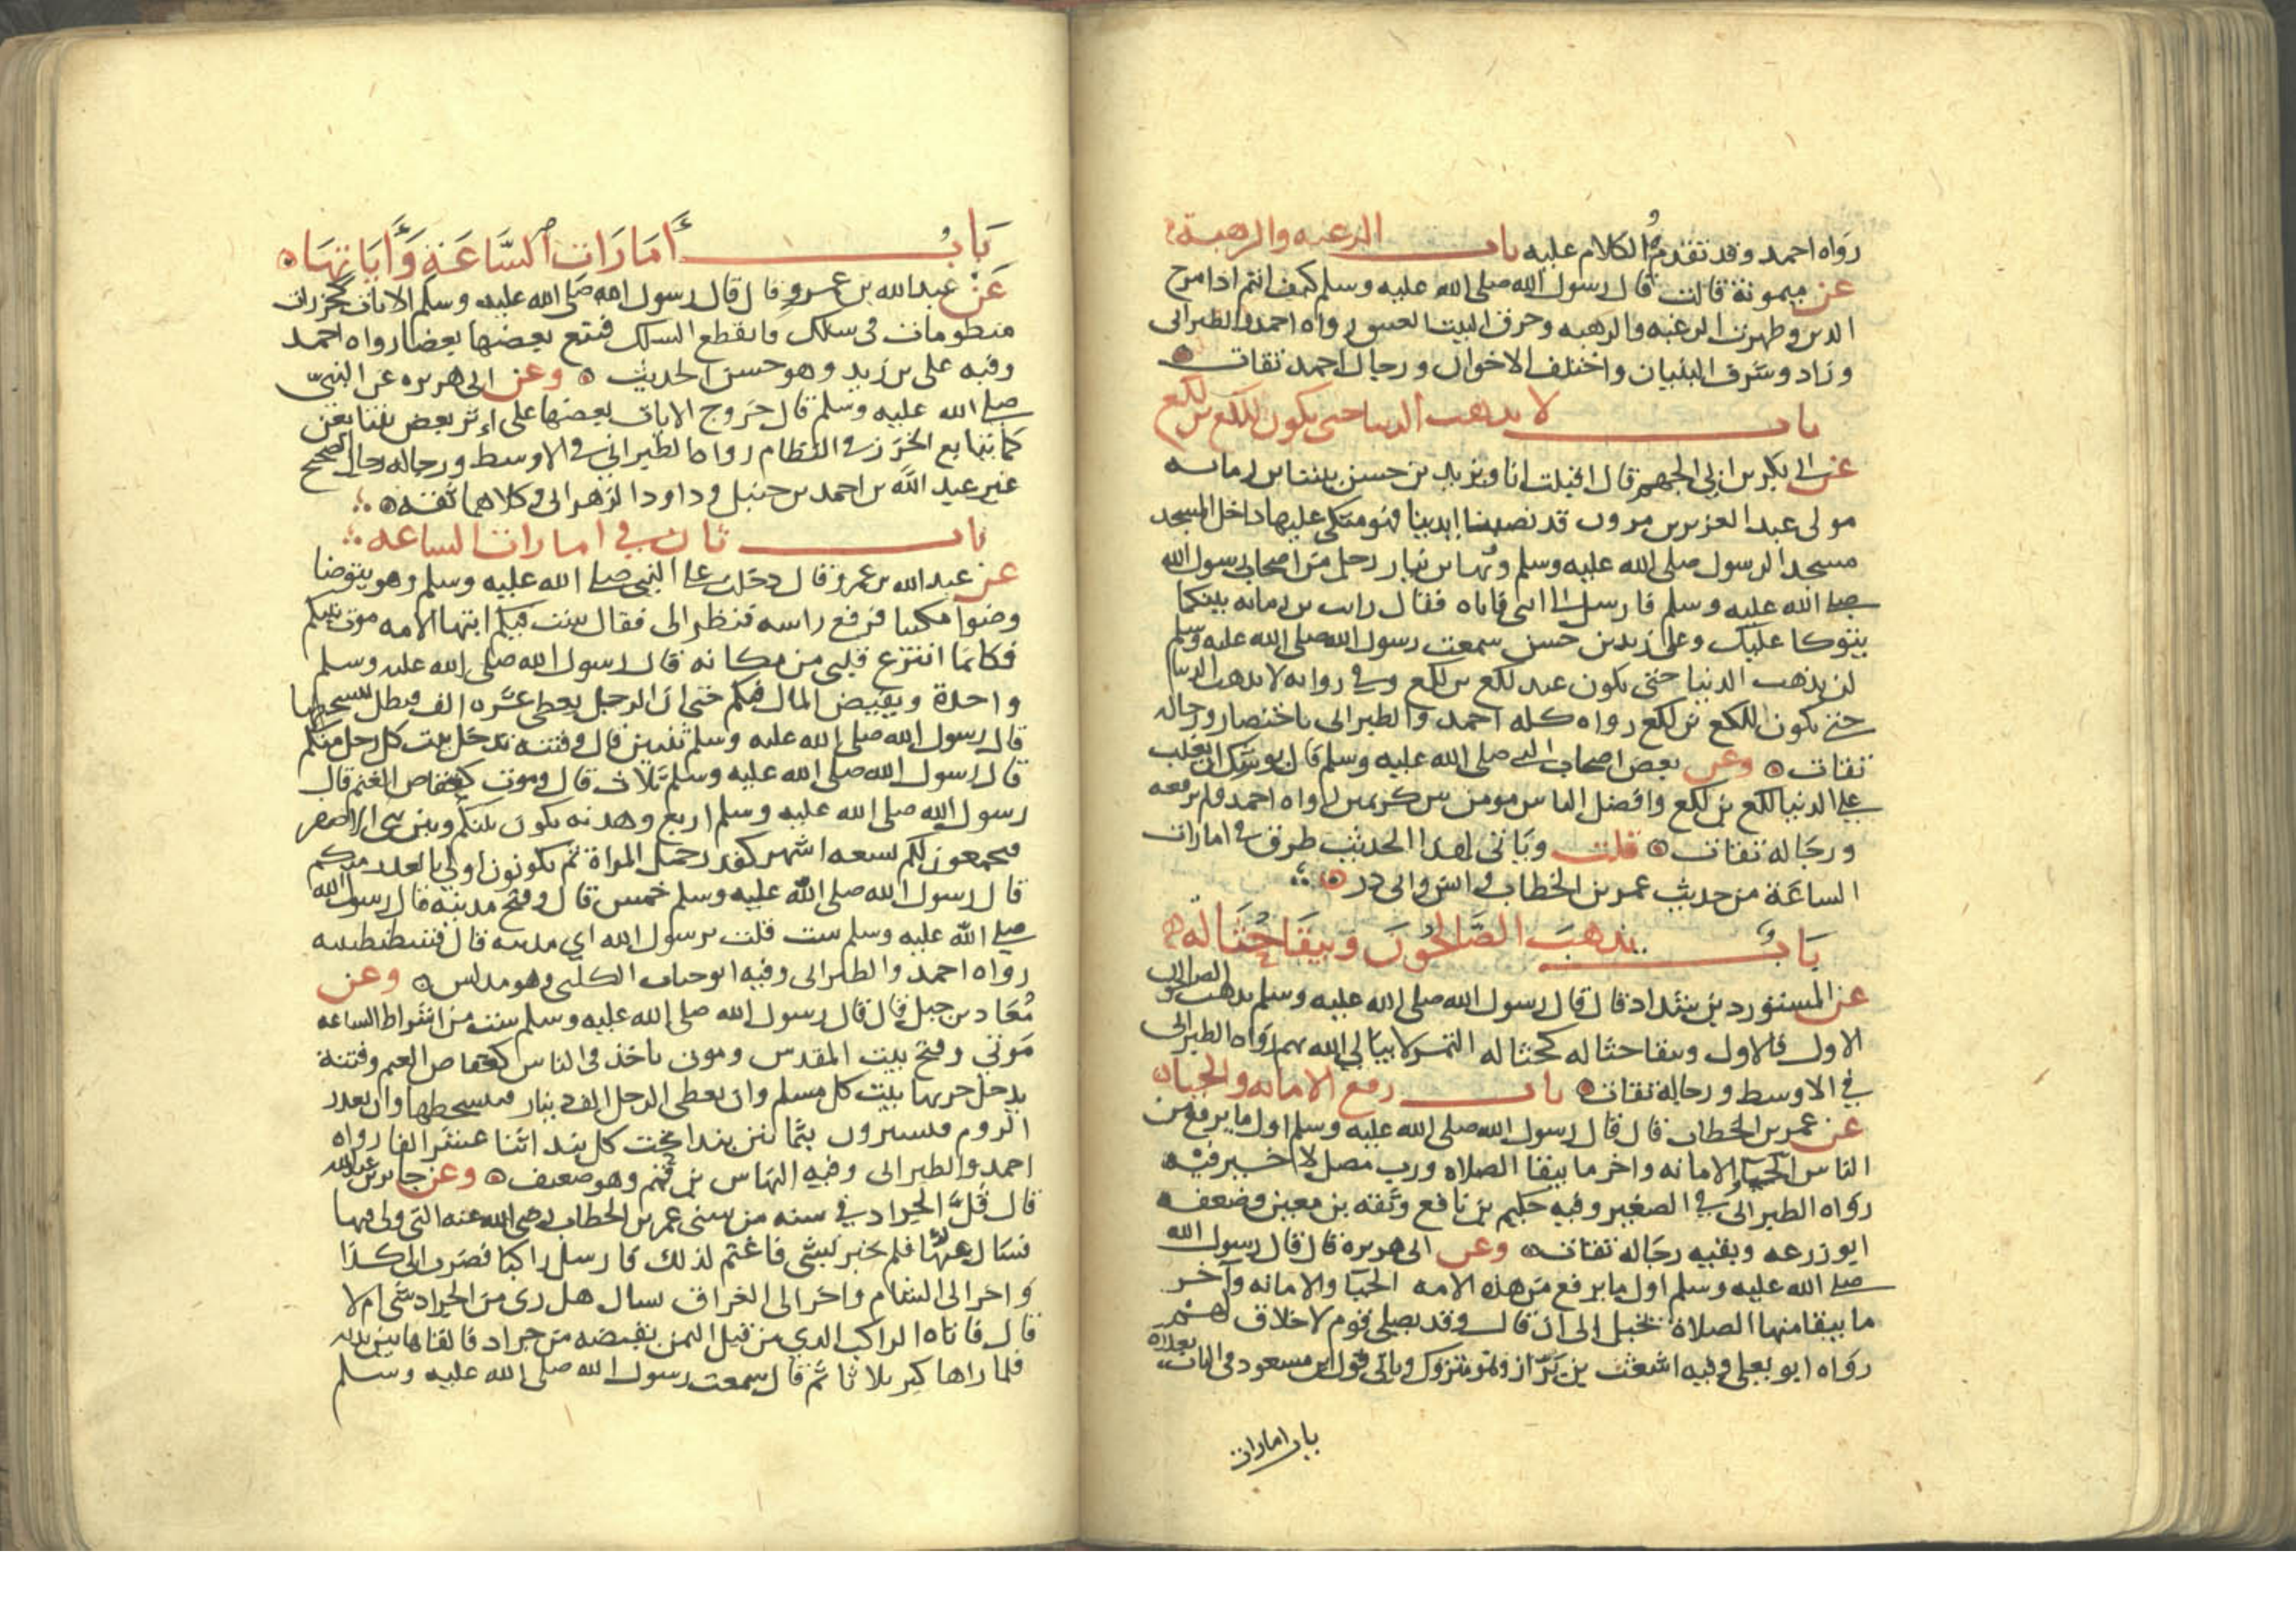 رواه احمد وقد تقدم الكلام عليه باب الرغبه والرهبة
عن ميمونة قالت قال رسول الله صلى الله عليه وسلم كيف انتم اذا مرج
الدين وظهرت الرغبه والرهبه وحرق البيت العتيق رواه احمد والطبرانى
وزاد وشرف البنيان واختلف الاخوان ورجال احمد ثقات
باب لا يذهب الدنيا حتى يكون للكع بن لكع
عن ابى بكر بن ابى الجهم قال اقبلت انا وزيد بن حسن بيننا بن رمانه
مولى عبد العزيز بن مروان قد نصبنا ايدينا فهو متكى عليها داخل المسجد
مسجد الرسول صلى الله عليه وسلم وبها بن نيار رجل من اصحاب رسول الله
صلى الله عليه وسلم فارسل الى اتى فاتاه فقال رايت بن رمانه بينكما
يتوكا عليك وعلى زيد بن حسن سمعت رسول الله صلى الله عليه وسلم
لن يذهب الدنيا حتى يكون عند لكع بن لكع وفى روايه لا يذهب الدنيا
حتى يكون اللكع بن لكع رواه كله احمد والطبرانى باختصار ورجاله
ثقات وعن بعض اصحاب النبى صلى الله عليه وسلم قال يوشك ان يغلب
على الدنيا لكع بن لكع وافضل الناس مومن بين كريمين رواه احمد ولم يرفعه
ورجاله ثقات قلت وياتى لهذا الحديث طرق فى امارات
الساعة من حديث عمر بن الخطاب وانس وابى ذر
باب يذهب الصالحون ويبقا حثالة
عن المستورد بن شداد قال قال رسول الله صلى الله عليه وسلم يذهب الصالحون
الاول فالاول ويبقا حثاله كحثاله التمر لا يبالى الله بهم رواه الطبرانى
فى الاوسط ورجاله ثقات باب رفع الامانه والحياء
عن عمر بن الخطاب قال قال رسول الله صلى الله عليه وسلم اول ما يرفع من
الناس الامانه واخر ما يبقا الصلاه ورب مصل لا خير فيه
رواه الطبرانى فى الصغير وفيه حكيم بن نافع وثقه بن معين وضعفه
ابو زرعه وبقيه رجاله ثقات وعن ابى هريرة قال قال رسول الله
صلى الله عليه وسلم اول ما يرفع من هذه الامه الحيا والامانه وآخر
ما يبقا منها الصلاة يخيل الى ان قال وقد يصلى قوم لا خلاق لهم
رواه ابو يعلى وفيه اشعث بن براز وهو متروك وياتى قول ابن مسعود فى الباب بعده
باب امارات
بابُ أمَارَات السَّاعَة وَأيَاتِهَا
عن عبد الله بن عمرو قال قال رسول الله صلى الله عليه وسلم الايات كخرزات
منظومات فى سلك فانقطع السلك فتبع بعضها بعضا رواه احمد
وفيه على بن زيد وهو حسن الحديث وعن ابى هريره عن النبى
صلى الله عليه وسلم قال خروج الايات بعضها على اثر بعض يتتابعن
كما تتابع الخرز فى النظام رواه الطبرانى فى الاوسط ورجاله رجال الصحيح
غير عبد الله بن احمد بن حنبل وداود الزهرانى وكلاهما ثقه
باب ثان فى امارات الساعه
عن عبد الله بن عمرو قال دخلت على النبى صلى الله عليه وسلم وهو يتوضا
وضوا مكيثا فرفع راسه فنظر الى فقال ست فيكم ايتها الامه موت نبيكم
فكانما انتزع قلبى من مكانه قال رسول الله صلى الله عليه وسلم
واحدة ويفيض المال فيكم حتى ان الرجل يعطى عشره الف فيظل يتسخطها
قال رسول الله صلى الله عليه وسلم ثنتين قال وفتنه تدخل بيت كل رجل منكم
قال رسول الله صلى الله عليه وسلم ثلاث قال وموت كقعاص الغنم قال
رسول الله صلى الله عليه وسلم اربع وهدنه تكون بينكم وبين بنى الاصفر
فيجمعون لكم تسعه اشهر كقدر حمل المراة ثم يكونون اولى بالغدر منكم
قال رسول الله صلى الله عليه وسلم خمس قال وفتح مدينه قال رسول الله
صلى الله عليه وسلم ست قلت يرسول الله اى مدينه قال قسطنطينيه
رواه احمد والطبرانى وفيه ابو جناب الكلبى وهو مدلس وعن
مُعَاذ بن جبل قال قال رسول الله صلى الله عليه وسلم ست من اشراط الساعه
مَوتي وفتح بيت المقدس وموت ياخذ فى الناس كقعاص الغنم وفتنة
يدخل حربها بيت كل مسلم وان يعطى الرجل الف دينار فيتسخطها وان يغدر
الروم فيسيرون بثمانين بندا تحت كل بند اثنا عشر الفا رواه
احمد والطبرانى وفيه النهاس بن قهم وهو ضعيف وعن جابر بن عبد الله
قال قلَّ الجراد فى سنه من سنى عمر بن الخطاب رضى الله عنه التى ولى فيها
فسال عنها فلم يخبر بشى فاغتم لذلك فارسل راكبا فضرب الى كذا
واخر الى الشام واخر الى العراق يسال هل رى من الجراد شى ام لا
قال فاتاه الراكب الذى من قبل اليمن بقبضه من جراد فالقاها بين يديه
فلما راها كبر ثلاثا ثم قال سمعت رسول الله صلى الله عليه وسلم